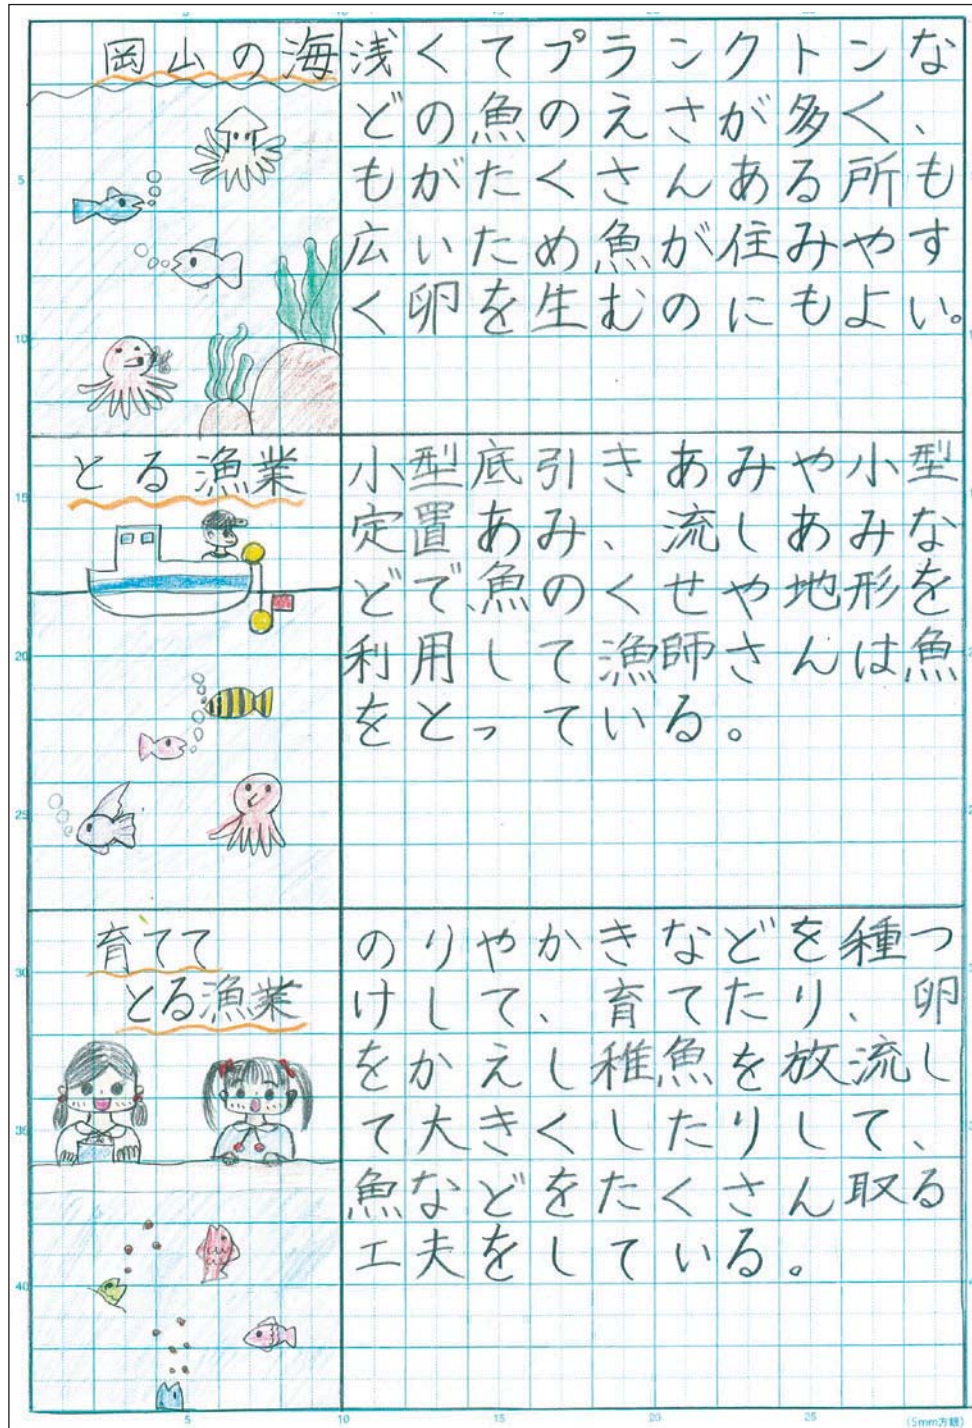 岡山の海
浅くてプランクトンな
どの魚のえさが多く、
もがたくさんある所も
広いため魚が住みやす
く卵を生むのにもよい。
とる漁業
小型底引きあみや小型
定置あみ、流しあみな
どで、魚のくせや地形を
利用して漁師さんは魚
をとっている。
育てて
とる漁業
のりやかきなどを種つ
けして、育てたり、卵
をかえし稚魚を放流し
て大きくしたりして、
魚などをたくさん取る
工夫をしている。
5
10
15
20
25
30
35
40
5
10
15
20
25
(5mm方眼)